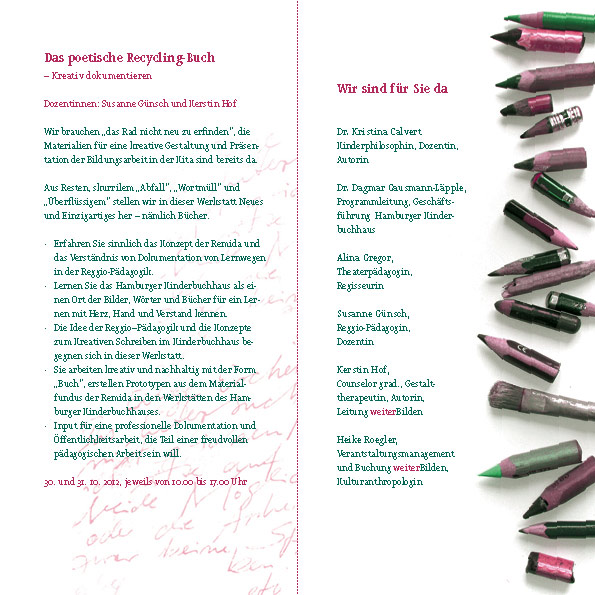 Das poetische Recycling-Buch
– Kreativ dokumentieren
Dozentinnen: Susanne Günsch und Kerstin Hof
Wir brauchen „das Rad nicht neu zu erfinden", die
Materialien für eine kreative Gestaltung und Präsen-
tation der Bildungsarbeit in der Kita sind bereits da.
Aus Resten, skurrilem „Abfall", „Wortmüll" und
„Überflüssigem" stellen wir in dieser Werkstatt Neues
und Einzigartiges her – nämlich Bücher.
· Erfahren Sie sinnlich das Konzept der Remida und
das Verständnis von Dokumentation von Lernwegen
in der Reggio-Pädagogik.
· Lernen Sie das Hamburger Kinderbuchhaus als ei-
nen Ort der Bilder, Wörter und Bücher für ein Ler-
nen mit Herz, Hand und Verstand kennen.
· Die Idee der Reggio–Pädagogik und die Konzepte
zum Kreativen Schreiben im Kinderbuchhaus be-
gegnen sich in dieser Werkstatt.
· Sie arbeiten kreativ und nachhaltig mit der Form
„Buch", erstellen Prototypen aus dem Material-
fundus der Remida in den Werkstätten des Ham-
burger Kinderbuchhauses.
· Input für eine professionelle Dokumentation und
Öffentlichkeitsarbeit, die Teil einer freudvollen
pädagogischen Arbeit sein will.
30. und 31. 10. 2012, jeweils von 10.00 bis 17.00 Uhr
Wir sind für Sie da
Dr. Kristina Calvert
Kinderphilosophin, Dozentin,
Autorin
Dr. Dagmar Gausmann-Läpple,
Programmleitung, Geschäfts-
führung Hamburger Kinder-
buchhaus
Alina Gregor,
Theaterpädagogin,
Regisseurin
Susanne Günsch,
Reggio-Pädagogin,
Dozentin
Kerstin Hof,
Counselor grad., Gestalt-
therapeutin, Autorin,
Leitung weiterBilden
Heike Roegler,
Verantstaltungsmanagement
und Buchung weiterBilden,
Kulturanthropologin